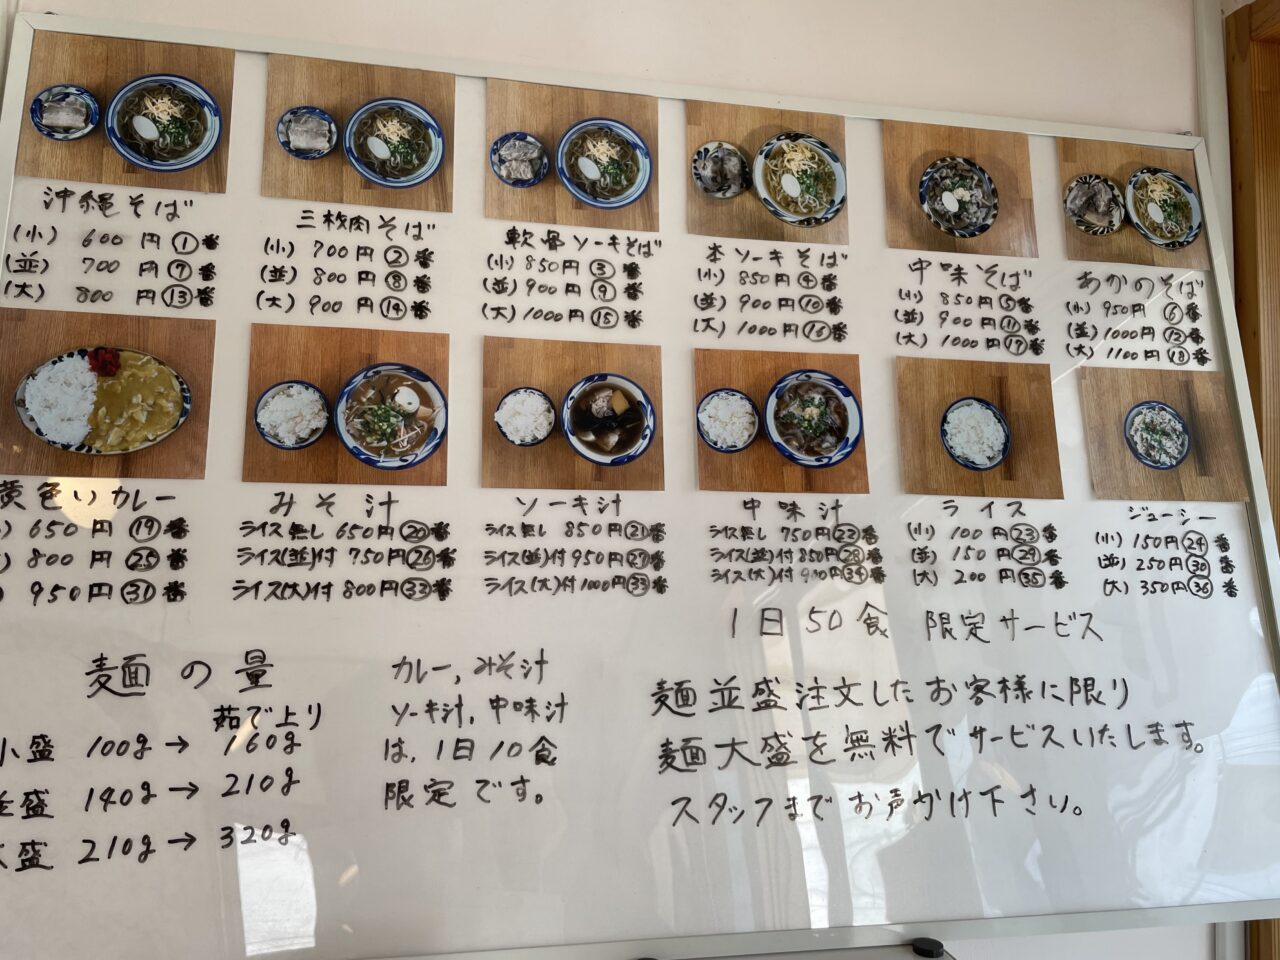 沖縄そば
(小) 600円①番
(並) 700円⑦番
(大) 800円⑬番
三枚肉そば
(小) 700円②番
(並) 800円⑧番
(大) 900円⑭番
軟骨ソーキそば
(小) 850円③番
(並) 900円⑨番
(大) 1000円⑮番
本ソーキそば
(小) 850円④番
(並) 900円⑩番
(大) 1000円⑯番
中味そば
(小) 850円⑤番
(並) 900円⑪番
(大) 1000円⑰番
あかのそば
(小) 950円⑥番
(並) 1000円⑫番
(大) 1100円⑱番
黄色いカレー
) 650円⑲番
) 800円㉕番
) 950円㉛番
みそ汁
ライス無し 650円⑳番
ライス(並)付 750円㉖番
ライス(大)付 800円㉝番
ソーキ汁
ライス無し 850円㉑番
ライス(並)付 950円㉗番
ライス(大)付 1000円㉝番
中味汁
ライス無し 750円㉒番
ライス(並)付 850円㉘番
ライス(大)付 900円㉞番
ライス
(小) 100円㉓番
(並) 150円㉙番
(大) 200円㉟番
ジューシー
(小) 150円㉔番
(並) 250円㉚番
(大) 350円㊱番
1日50食 限定サービス
麺並盛注文したお客様に限り
麺大盛を無料でサービスいたします。
スタッフまでお声かけ下さい。
カレー,みそ汁
ソーキ汁,中味汁
は,1日10食
限定です。
麺の量
茹で上り
小盛 100g→160g
並盛 140g→210g
大盛 210g→320g